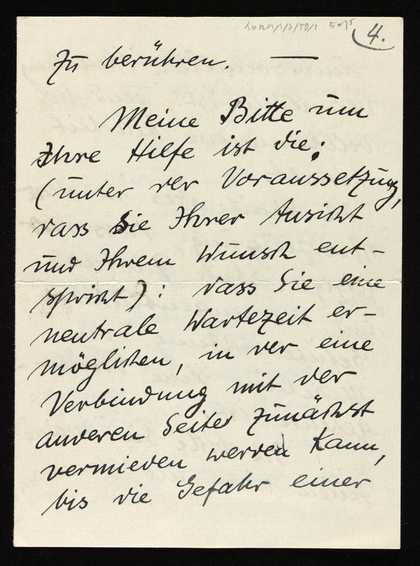 4.
zu berühren. —
Meine Bitte um
Ihre Hilfe ist die:
(unter der Voraussetzung,
dass Sie Ihrer Ansicht
und Ihrem Wunsch ent-
spricht): dass Sie eine
neutrale Wartezeit er-
möglichen, in der eine
Verbindung mit der
anderen Seite zunächst
vermieden werden kann,
bis die Gefahr einer